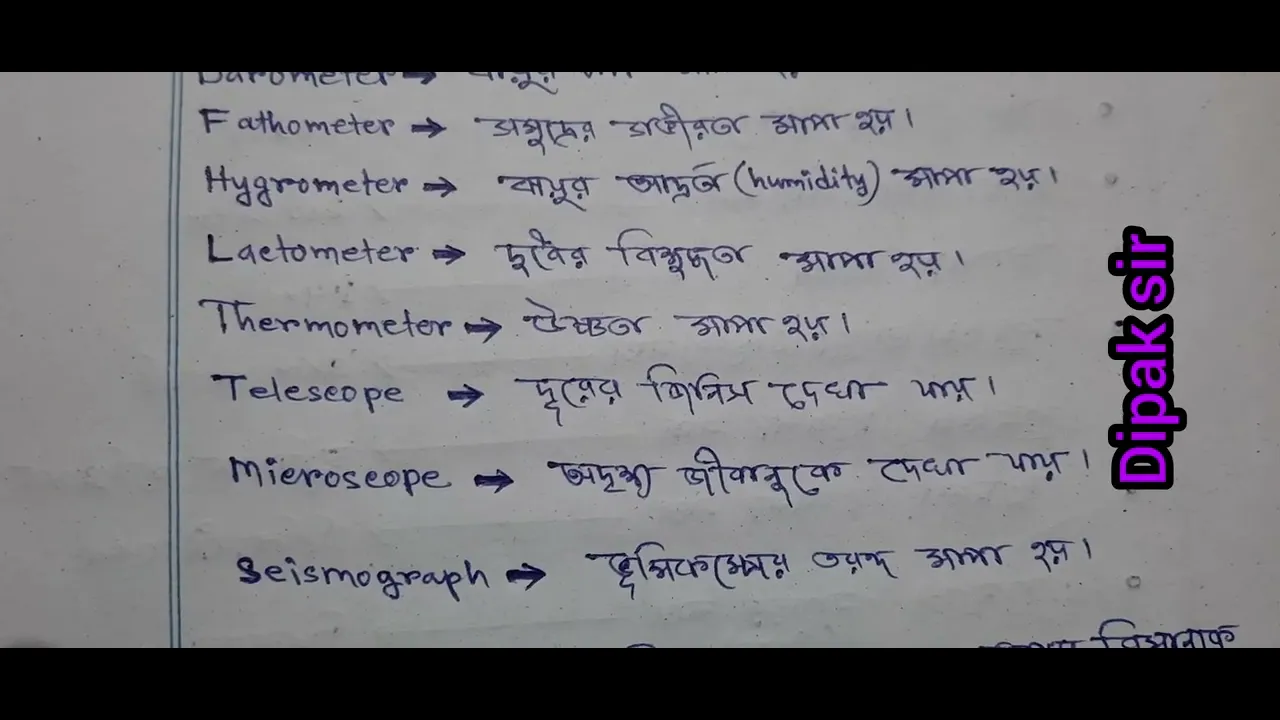 Barometer → বায়ুর
Fathometer → সমুদ্রের গভীরতা মাপা হয়।
Hygrometer → বায়ুর আদ্রর্তা (humidity) মাপা হয়।
Lactometer → দুধের বিশুদ্ধতা মাপা হয়।
Thermometer → উষ্ণতা মাপা হয়।
Telescope → দূরের জিনিস দেখা যায়।
Microscope → অদৃশ্য জীবাণুকে দেখা যায়।
Seismograph → ভূমিকম্পের তরঙ্গ মাপা হয়।
Dipak sir